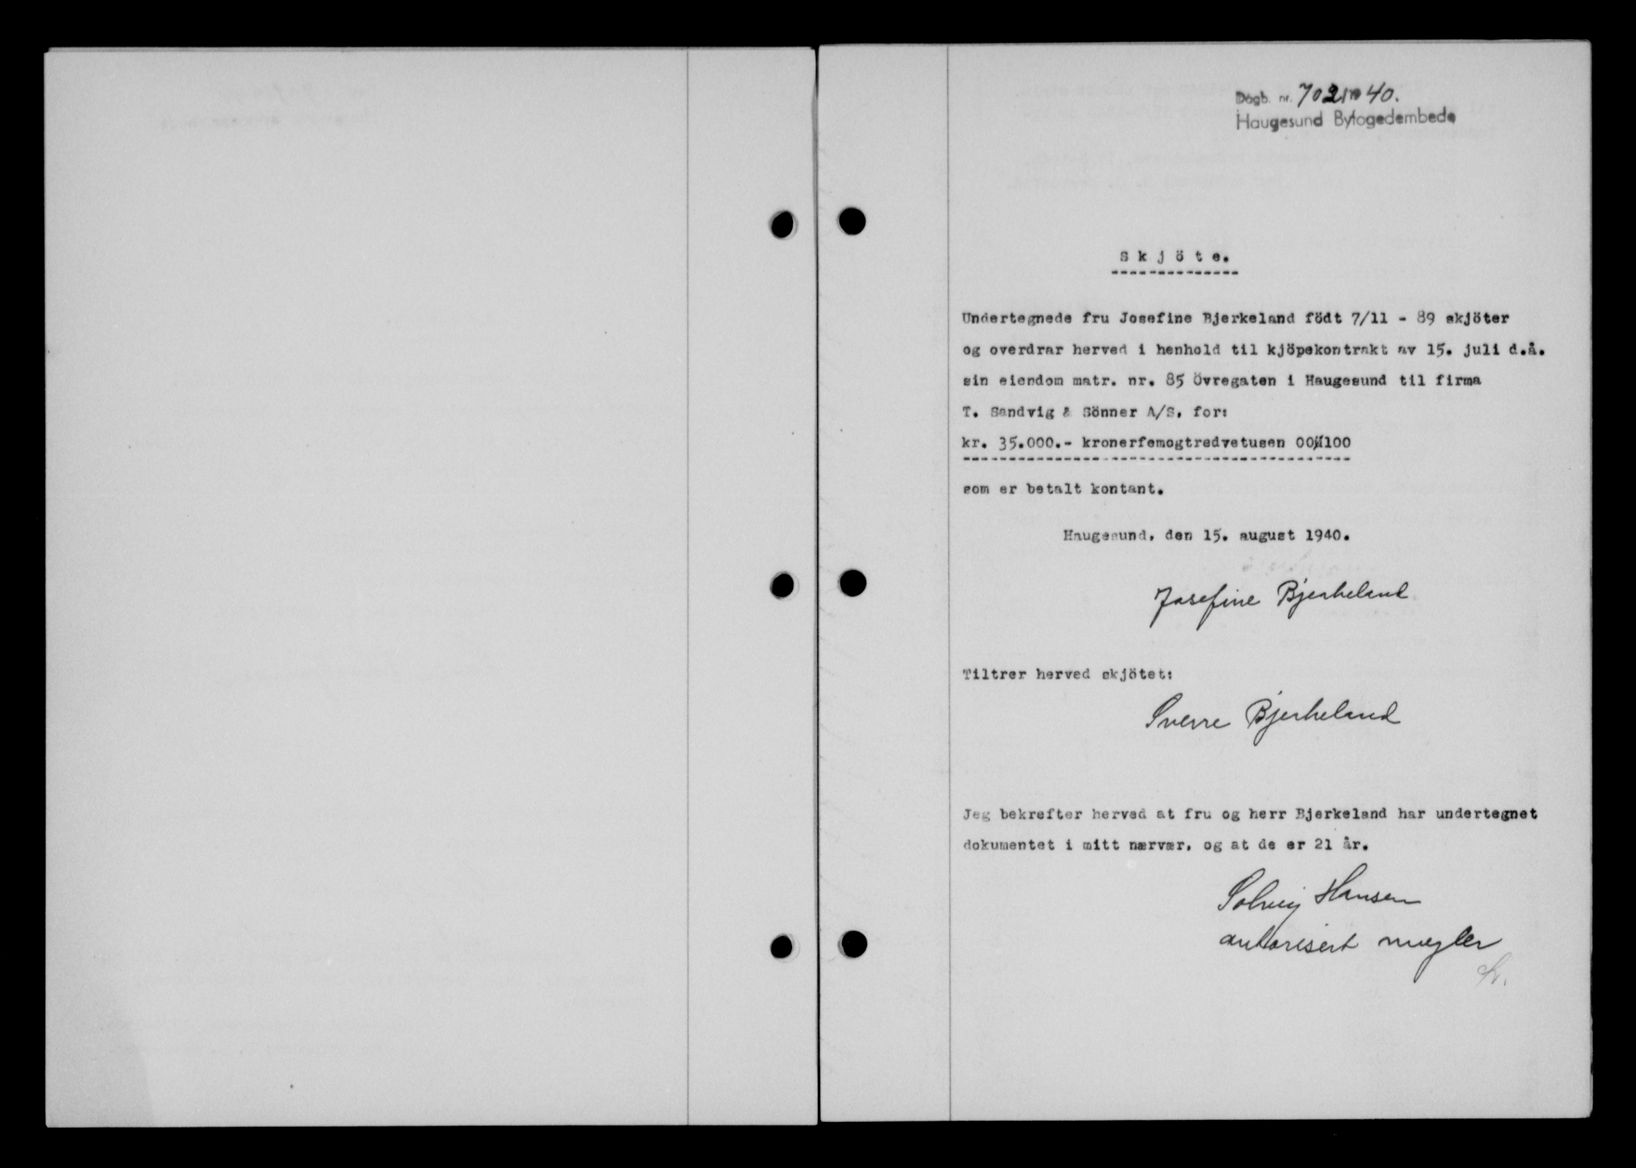 Dagb. nr. 702 1940.
Haugesund Byfogedembede
Skjöte.
Undertegnede fru Josefine Bjerkeland födt 7/11 - 89 skjöter
og overdrar herved i henhold til kjöpekontrakt av 15. juli d.å.
sin eiendom matr. nr. 85 Övregaten i Haugesund til firma
T. Sandvig & Sönner A/S, for:
kr. 35.000.- kronerfemogtredvetusen 00/100
som er betalt kontant.
Haugesund, den 15. august 1940.
Josefine Bjerkeland
Tiltrer herved skjötet:
Sverre Bjerkeland
Jeg bekrefter herved at fru og herr Bjerkeland har undertegnet
dokumentet i mitt nærvær, og at de er 21 år.
Solveig Hansen
autorisert megler